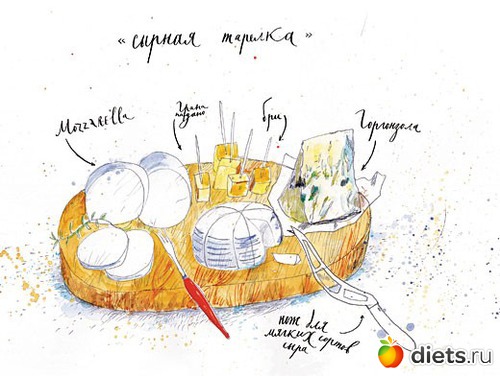 «сырная тарелка»
Mozzarella
Грана
падано
бри
Горгонзола
нож для
мягких сортов
сыра
diets.ru